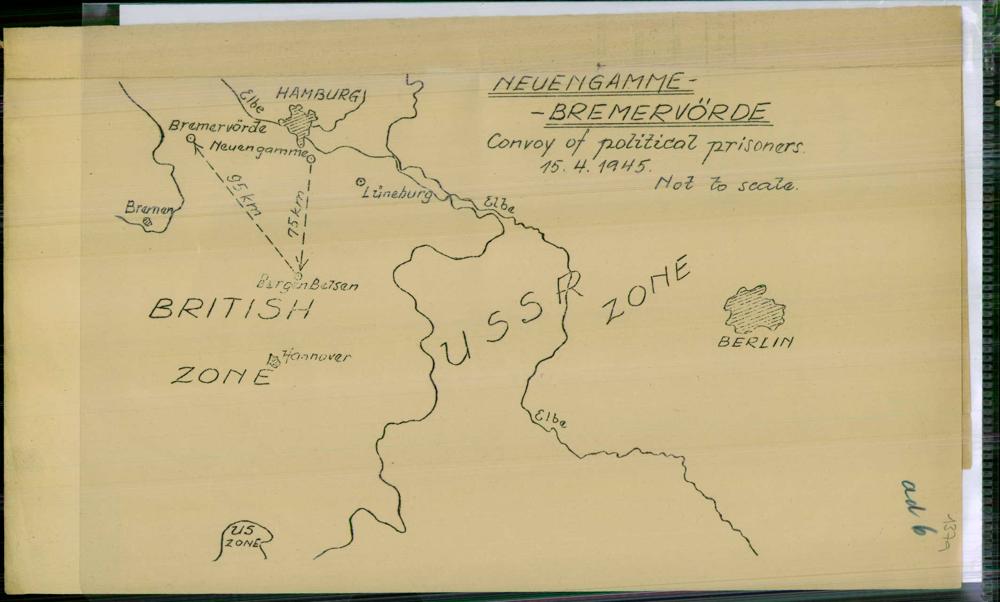 NEUENGAMME-
-BREMERVÖRDE
Convoy of political prisoners.
15. 4. 1945.
Not to scale.
Elbe
HAMBURG
Bremervörde
Neuengamme
Lüneburg
Elbe
95 km
75 km
Bremen
Bergen Belsen
BRITISH
ZONE
Hannover
USSR ZONE
BERLIN
Elbe
US
ZONE
ad 6
137a